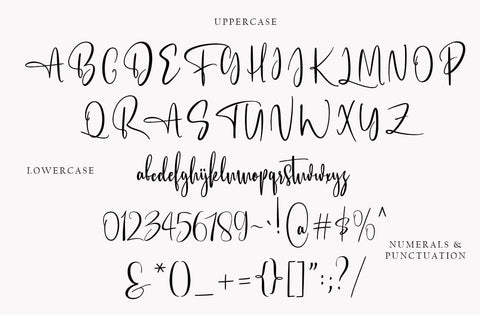 UPPERCASE
ABCDEFGHIJKLMNOP
QRASTUNWXYZ
LOWERCASE
abcdefghijklmnopqrstuvwxyz
0123456789~`!@#$%^
NUMERALS &
PUNCTUATION
&*()_+={}[]":;?/